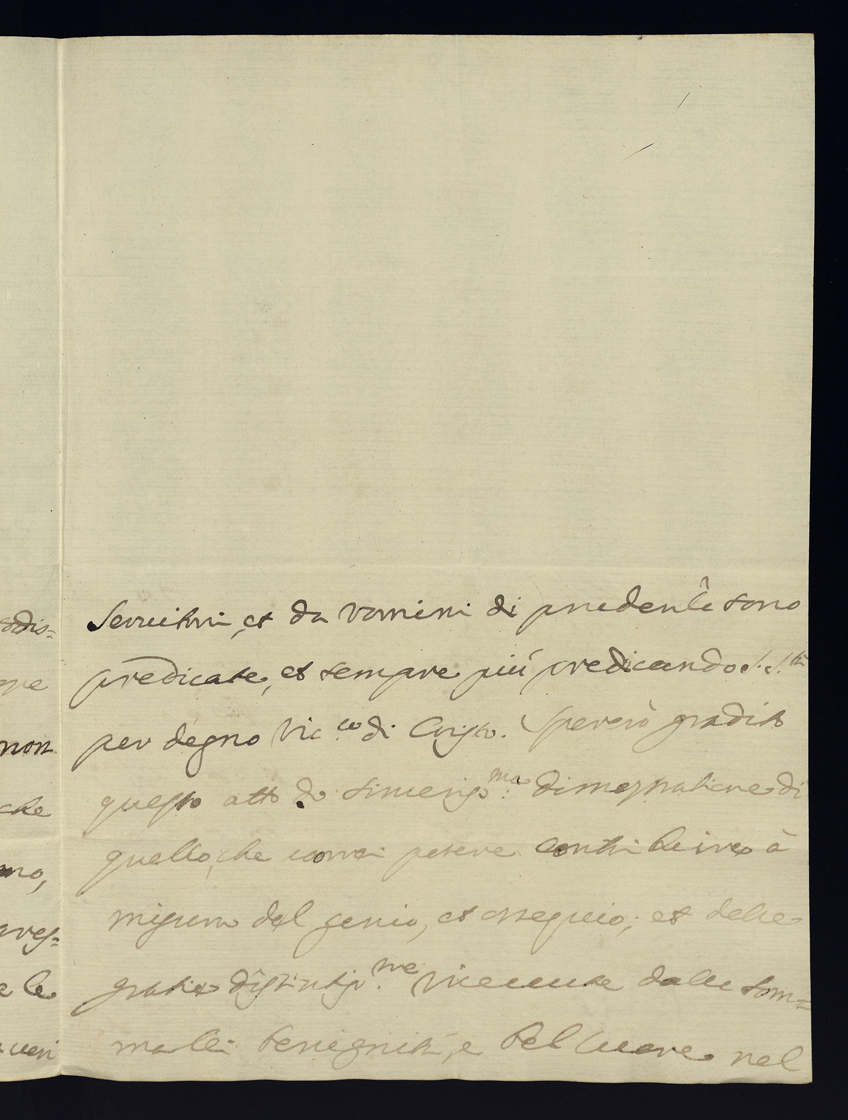 sodis=
Servitori, et da Uomini di prudenza sono
predicate, et sempre più predicando S. S.tà
non
per degno Vic.co di Cristo. Sperarò gradito
che
questo atto di sinceriss.ma dimostratione di
mo,
quello, che vorrei potere contribuire à
misura del genio, et ossequio; et delle
e le
gratie distintiss.me riceuute dalla som=
ueri
ma Lei benignità, e bel cuore nel